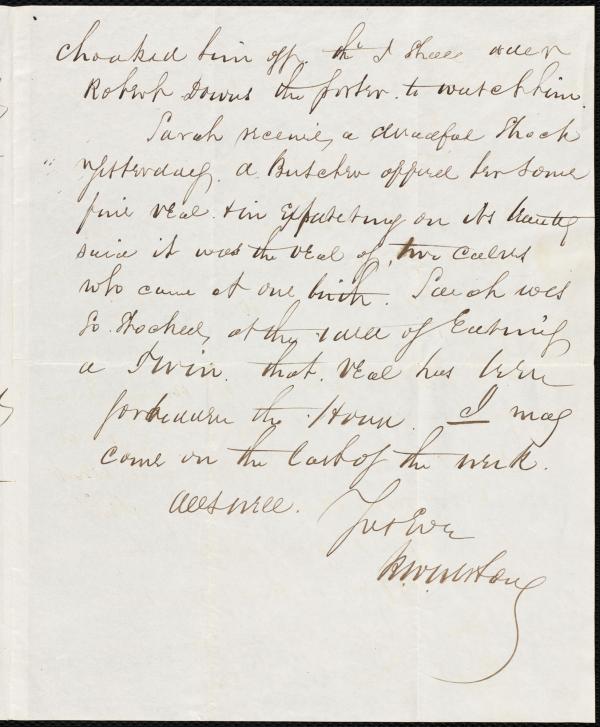 choaked him off. tho' I shall order
Robert Downs the porter to watch him.
Sarah received a dreadful shock
yesterday. a Butcher offered her some
fine veal & in expatiating on its beauty
said it was the veal of two calves
who came at one birth. Sarah was
so shocked at the idea of Eating
a Twin. that veal has been
forbidden the House. I may
come on the last of the week.
All's well.
Yrs Ever